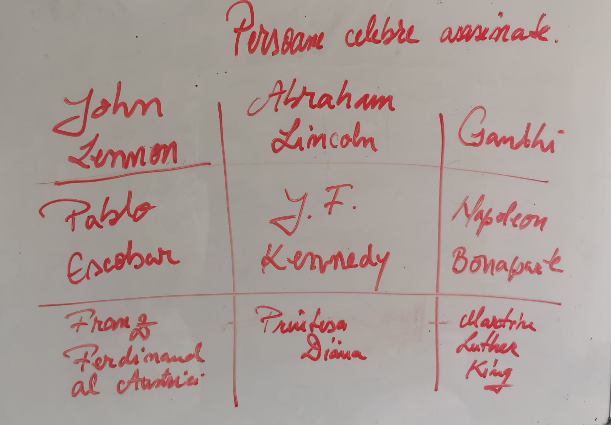 Persoane celebre asasinate.
John
Lennon
Abraham
Lincoln
Gandhi
Pablo
Escobar
J. F.
Kennedy
Napoleon
Bonaparte
Franz
Ferdinand
al Austriei
Prințesa
Diana
Martin
Luther
King